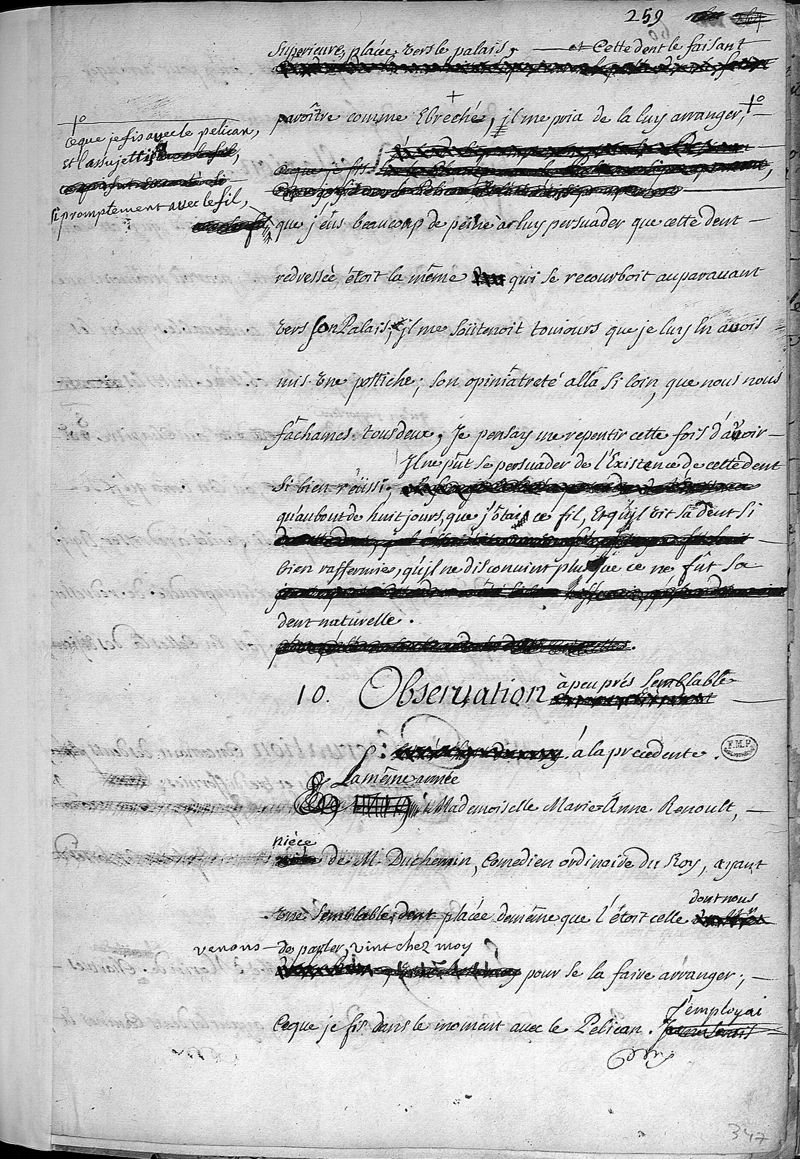 259
Superieure, placée, vers le palais, — et Cette dent le faisant
paroître comme Ebreché, + jl me pria de la luy arranger, 1º
1º
ce que je fis avec le pelican,
et l'assujettis
si promptement avec le fil,
ce que je fis
que j'eus beaucoup de peine à luy persuader que cette dent —
redressée, étoit la même qui se recourboit auparavant
vers son Palais, jl me soûtenoit toujours que je luy en avois
mis une postiche; son opiniatreté alla si loin, que nous nous
fâchames tous deux, Je pensay me repentir cette fois d'avoir —
si bien réussi, Jl ne pût se persuader de l'Existence de cette dent
qu'au bout de huit jours, que j'ôtai ce fil, et qu'il vit sa dent si
bien raffermie, qu'jl ne disconvint plus que ce ne fût sa
dent naturelle.
10. Observation à peu près semblable —
à la precedente.
F.M.P.
La même année
Mademoiselle Marie Anne Renoult, —
nièce de M. Duchemin, Comedien ordinaire du Roy, ayant
une semblable dent placée de même que l'étoit celle dont nous
venons — de parler, vint chez moy pour se la faire arranger; —
Ce que je fis dans le moment avec le Pelican. J'employai
347